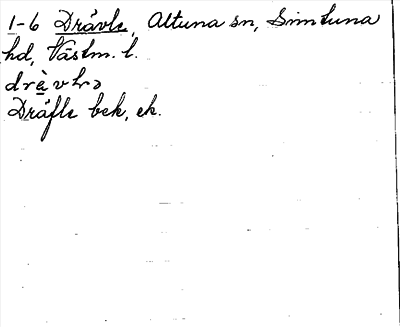 1-6 Drävle, Altuna sn, Simtuna
hd, Västm. l.
Dräfle bek, ek.